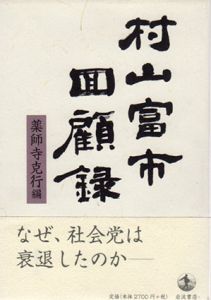 村山富市
回顧録
薬師寺克行 編
なぜ、社会党は
衰退したのか──
定価(本体2700円+税)
岩波書店